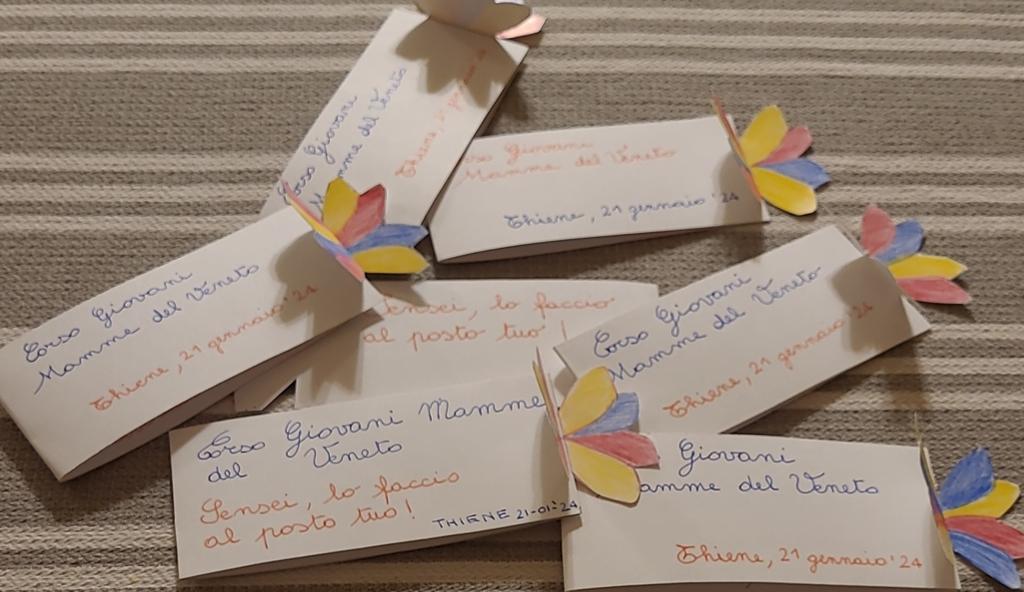 Corso Giovani
Mamme del Veneto
Thiene, 21 gennaio '24
Giovani
Mamme del Veneto
Thiene, 21 gennaio '24
Corso Giovani
Mamme del Veneto
Thiene, 21 gennaio '24
Sensei, lo faccio
al posto tuo!
Corso Giovani
Mamme del Veneto
Thiene, 21 gennaio '24
Corso Giovani Mamme
del Veneto
Sensei, lo faccio
al posto tuo!
THIENE 21-01-'24
Giovani
amme del Veneto
Thiene, 21 gennaio '24